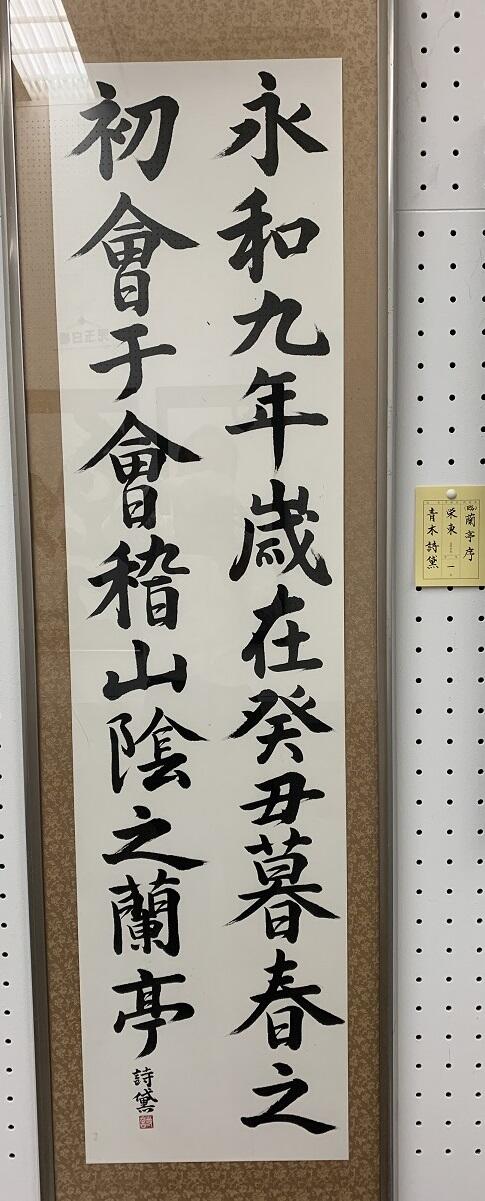 永和九年歳在癸丑暮春之
初會于會稽山陰之蘭亭
詩黛
(臨)蘭亭序
栄東 一
青木詩黛